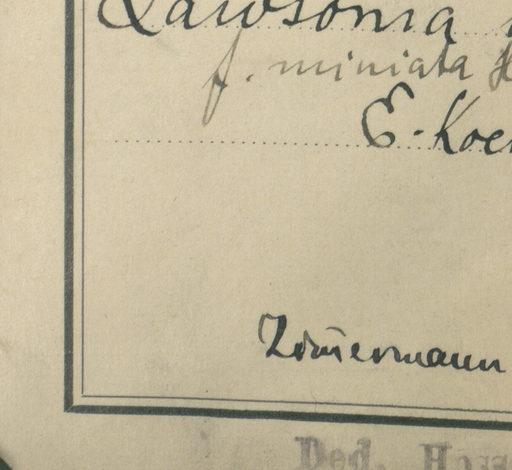 Lawsonia
f. miniata
E. Koe
Zimmermann
Ded.